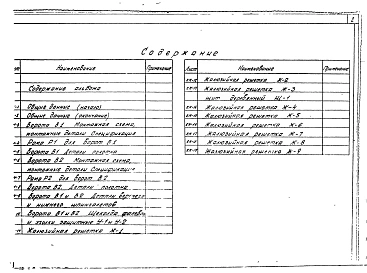 2
Содержание
Лист
Наименование
Примечание
Содержание альбома
Общие данные (начало)
Общие данные (окончание)
Ворота В.1 Монтажная схема,
монтажные детали Спецификация
Рама Р1 для ворот В.1
Ворота В1 Детали полотна
Ворота В2 Монтажная схема,
монтажные детали Спецификация
Рама Р2 для ворот В.2
Ворота В2. Детали полотна
Ворота В1 и В2 Детали верхнего
и нижнего
Ворота В1 и В2
и
Жалюзийная решетка Ж-1
Лист
Наименование
Примечание
Жалюзийная решетка Ж-2
Жалюзийная решетка Ж-3
щит деревянный Щ-1
Жалюзийная решетка Ж-4
Жалюзийная решетка Ж-5
Жалюзийная решетка Ж-6
Жалюзийная решетка Ж-7
Жалюзийная решетка Ж-8
Жалюзийная решетка Ж-9